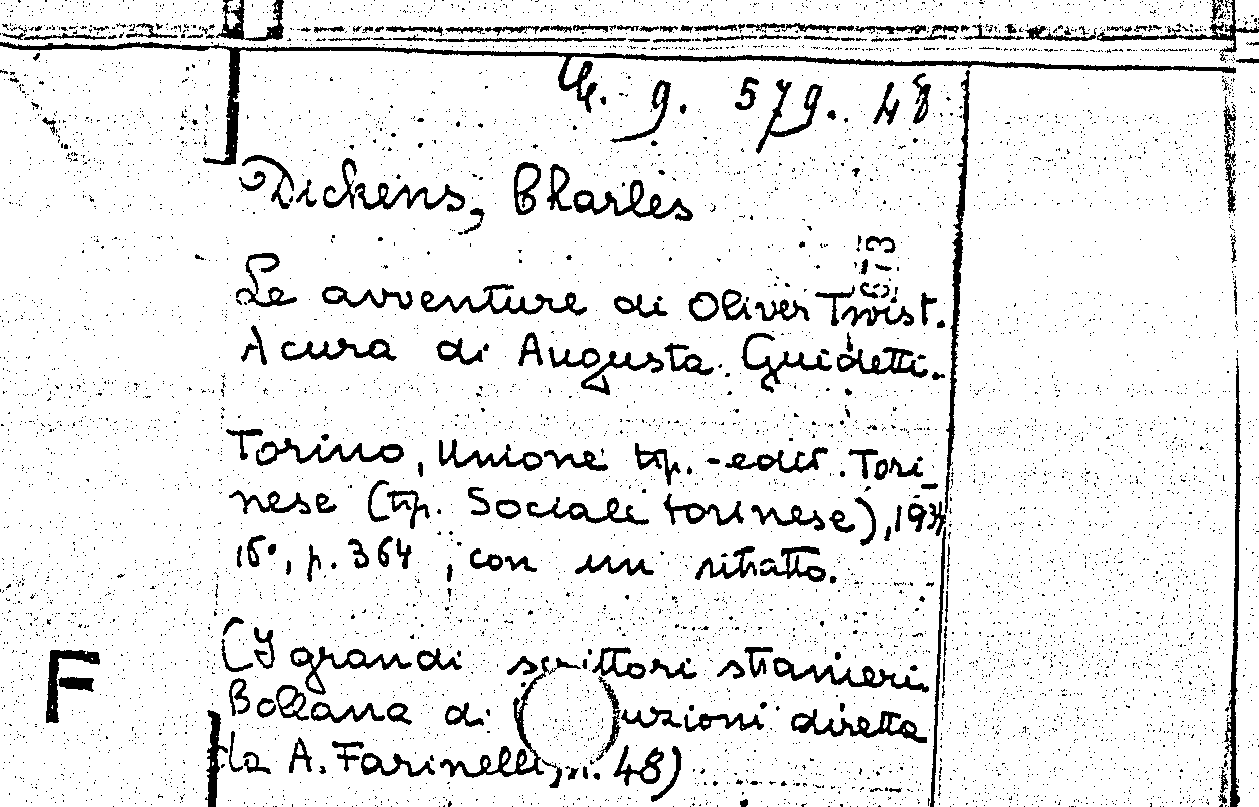 9. 579. 48
Dickens, Charles
613
Le avventure di Oliver Twist.
A cura di Augusta Guidetti.
Torino, Unione tip.-edit. Tori_
nese (tip. Sociale torinese), 193
16°, p. 364, con un ritratto.
(I grandi scrittori stranieri
F
Collana di uzioni diretta
da A. Farinelli, n. 48)